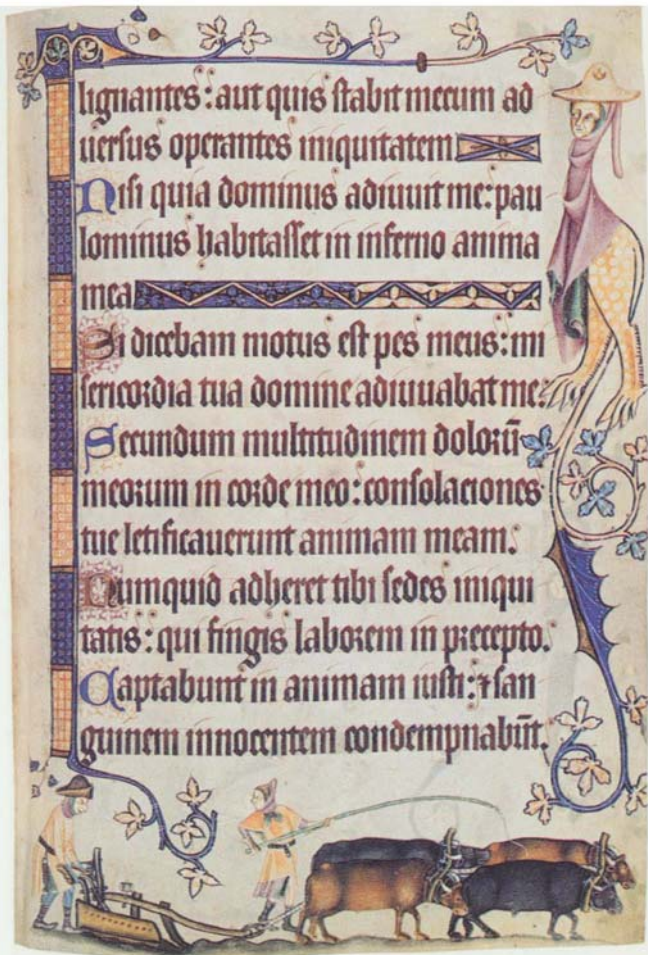 lignantes: aut quis stabit mecum ad
uersus operantes iniquitatem
Nisi quia dominus adiuuit me: pau
lominus habitasset in inferno anima
mea
Si dicebam motus est pes meus: mi
sericordia tua domine adiuuabat me.
Secundum multitudinem dolorū
meorum in corde meo: consolaciones
tue letificauerunt animam meam.
Numquid adheret tibi sedes iniqui
tatis: qui fingis laborem in precepto.
Captabunt in animam iusti: ⁊ san
guinem innocentem condempnabūt.